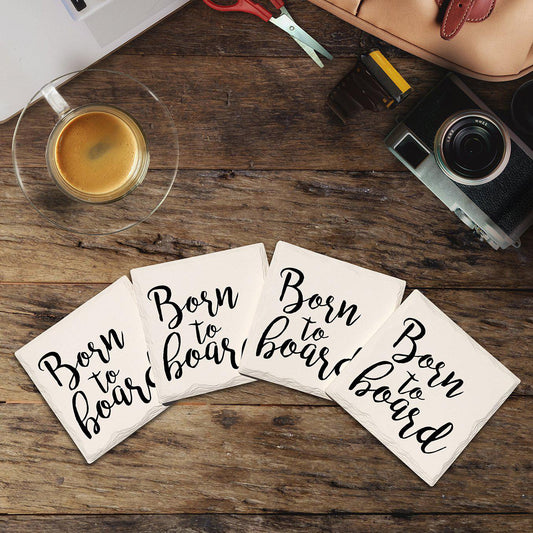 Born
to
board
Born
to
board
Born
to
board
Born
to
board